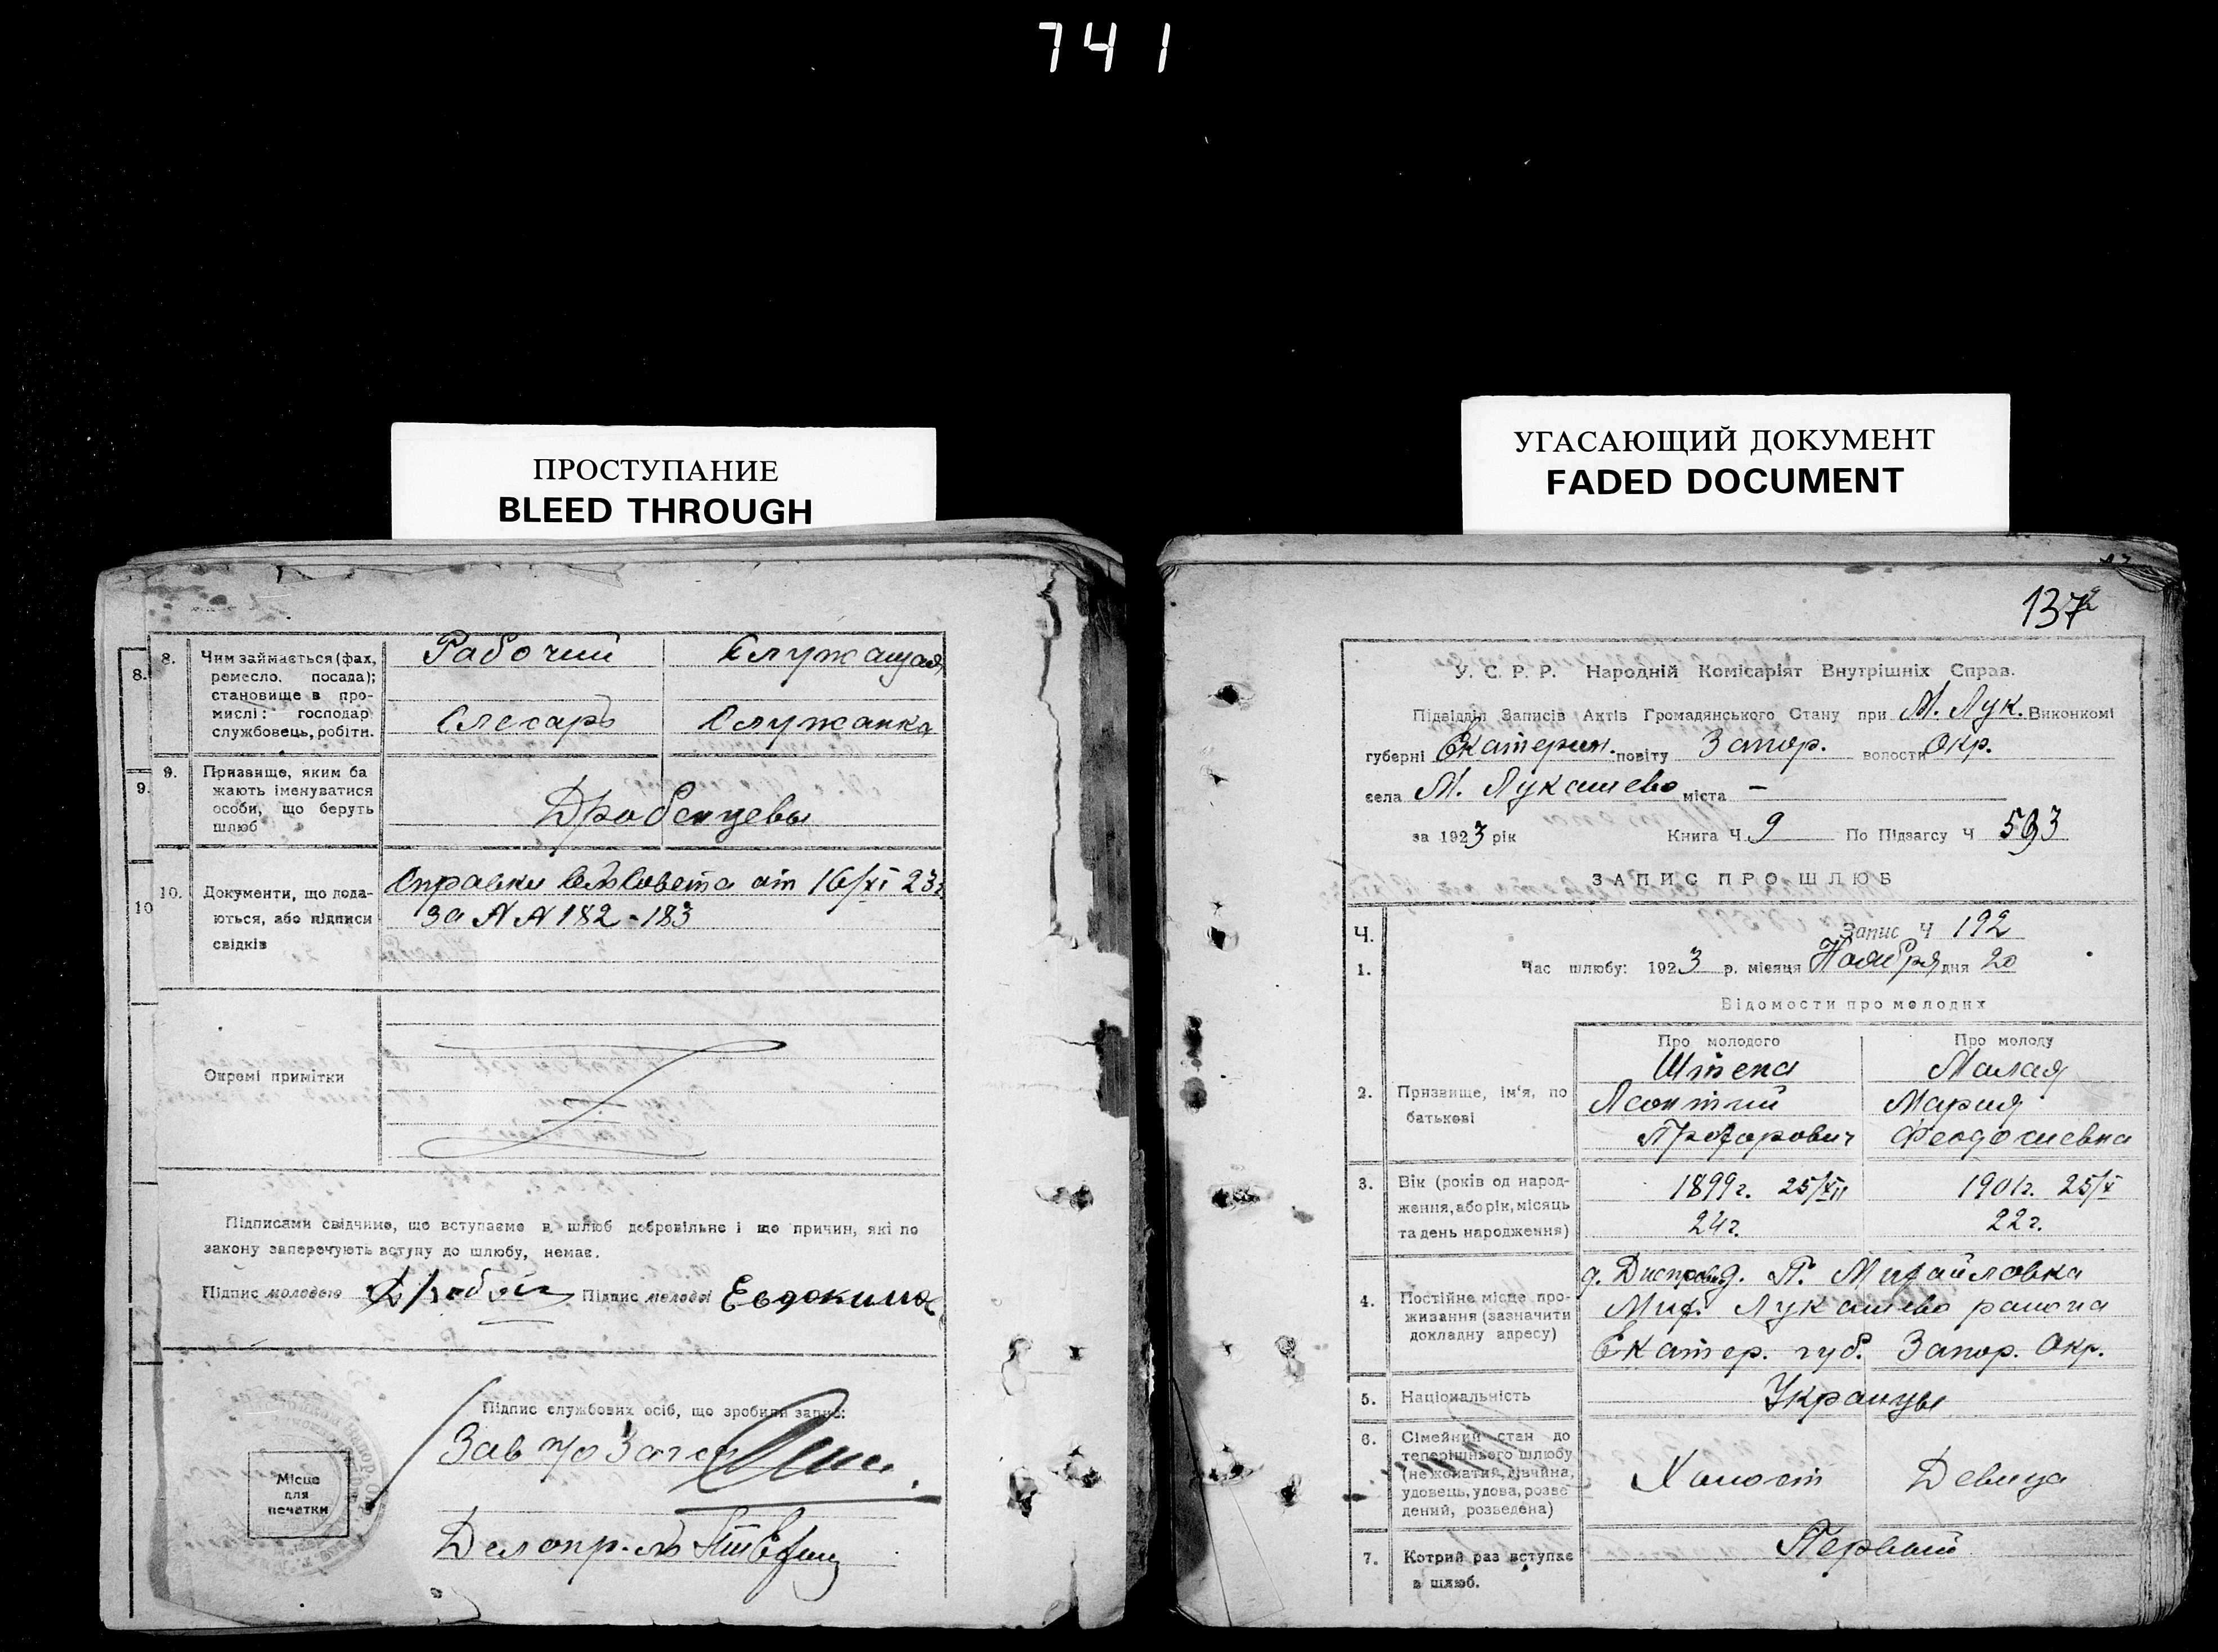 741
ПРОСТУПАНИЕ
BLEED THROUGH
УГАСАЮЩИЙ ДОКУМЕНТ
FADED DOCUMENT
8.
8. Чим займається (фах, ремесло, посада); становище в промислі: господар службовець, робітн.
Рабочий Служащая
Слесарь Служанка
9.
9. Призвище, яким ба
жають іменуватися
особи, що беруть
шлюб
Дробенцевы
10
10. Документи, що пода-
ються, або підписи
свідків
Справки СельСовета от 16/XI 23г
за NN 182-183
Окремі примітки
Підписами свідчимо, що вступаємо в шлюб добровільно і що причин, які по
закону заперечують вступу до шлюбу, немає.
Підпис молодого Підпис молодої Евдокима
Підпис службових осіб, що зробили запис:
Зав п/о Загса
Місце
для
печатки
Делопр-ль
137
У. С. Р. Р. Народній Комісаріят Внутрішніх Справ.
Підвідділ Записів Актів Громадянського Стану при М. Лук. Виконкомі
губерні Екатерин. повіту Запор. волости Окр.
села М. Лукашево міста –
за 1923 рік Книга Ч. 9 По Підзагсу Ч 593
ЗАПИС ПРО ШЛЮБ
Ч. Запис Ч 192
1. Час шлюбу: 1923 р. місяця Ноября дня 20
Відомости про молодих
Про молодого Про молоду
2. Призвище, ім'я, по
батькові
Штепа Малая
Леонтий Мария
Прохорович Феодосиевна
3. Вік (років од народ-
ження, або рік, місяць
та день народження)
1899г. 25/XII 1901г. 25/X
24г. 22г.
4. Постійне місце про-
живання (зазначити
докладну адресу)
д. П. Михайловка
Мих. Лукашево района
Екатер. губ. Запор. Окр.
5. Національність Украинцы
6. Сімейний стан до
теперішнього шлюбу
(нежонатий, дівчина,
удовець, удова, розве
дений, розведена)
Холост Девица
7. Котрий раз вступає
в шлюб.
Первый